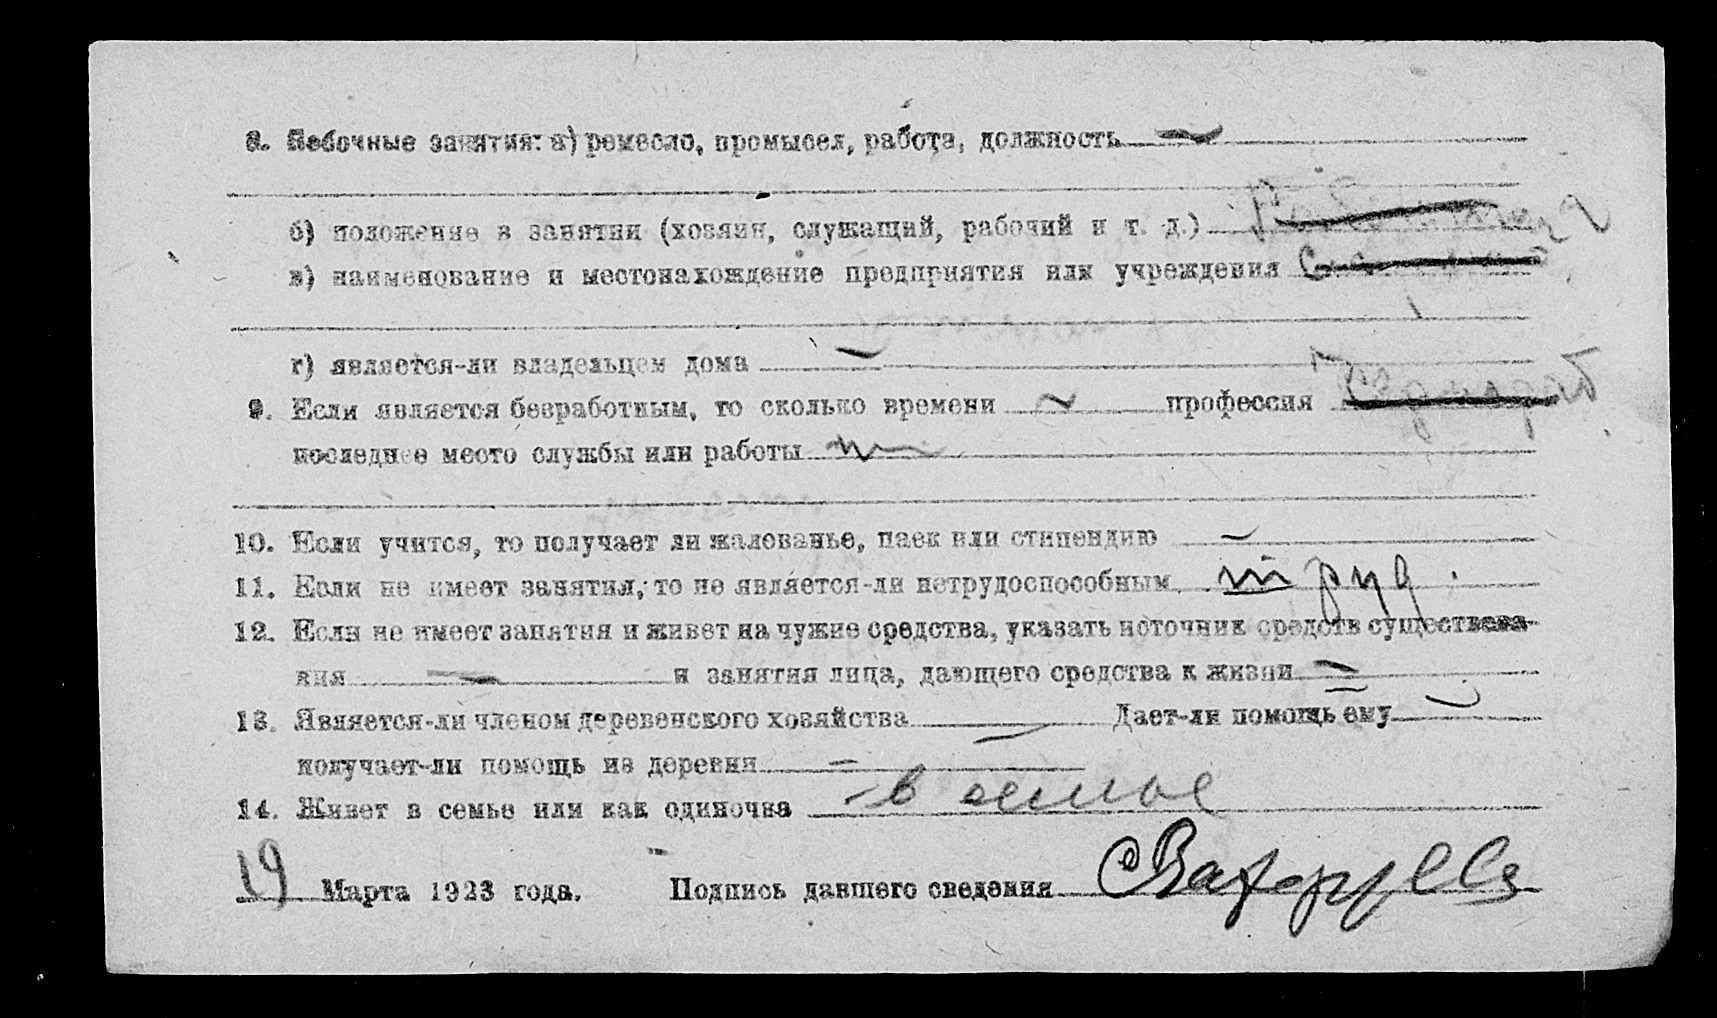 8. Побочные занятия: а) ремесло, промысел, работа, должность —
б) положение в занятии (хозяин, служащий, рабочий и т. д.)
в) наименование и местонахождение предприятия или учреждения
г) является-ли владельцем дома —
9. Если является безработным, то сколько времени — профессия
последнее место службы или работы
10. Если учится, то получает ли жалованье, паек или стипендию —
11. Если не имеет занятия, то не является-ли нетрудоспособным
12. Если не имеет занятия и живет на чужие средства, указать источник средств существова-
ния — и занятия лица, дающего средства к жизни —
13. Является-ли членом деревенского хозяйства — Дает-ли помощь ему —
получает-ли помощь из деревни —
14. Живет в семье или как одиночка - в семье
19 Марта 1923 года. Подпись давшего сведения